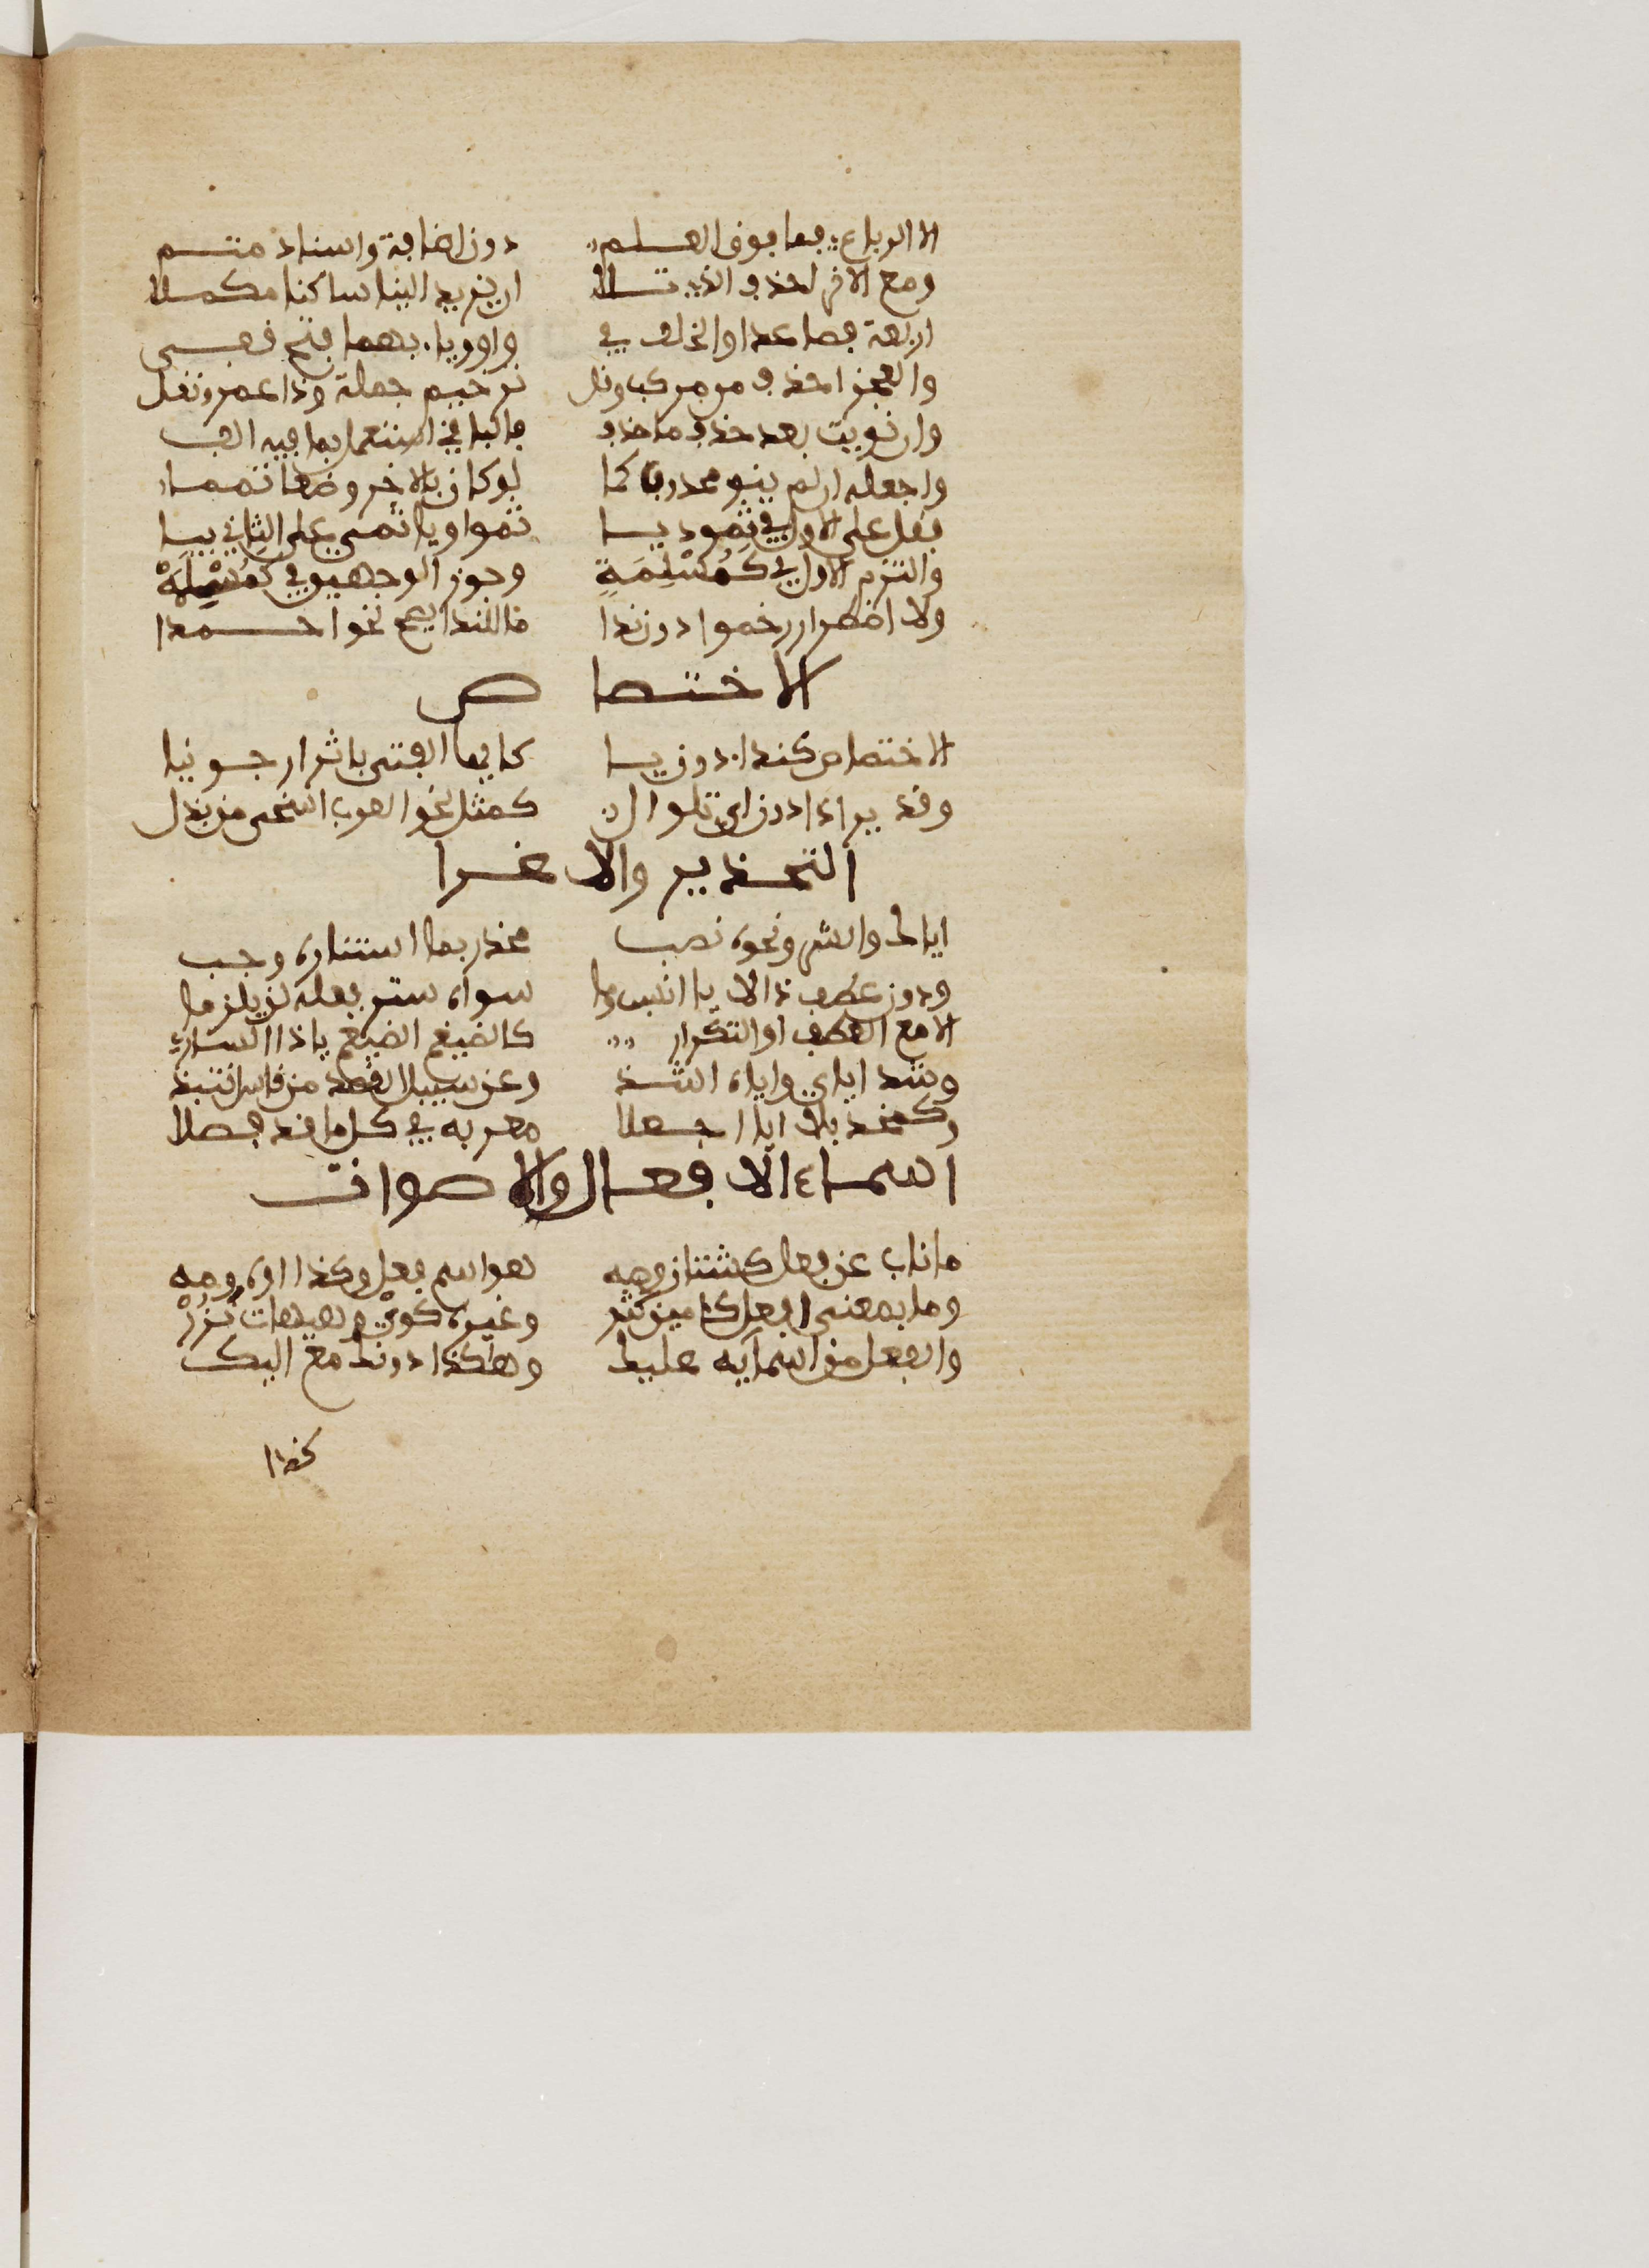 الا الرباعي فما فوق العلم دون اضافة واسناد متم
ومع الاخر احذف الذي تلا ان زيد لينا ساكنا مكملا
اربعة فصاعدا والخلف في واو وياء بهما فتح قفي
والعجز احذف من مركب وقل ترخيم جملة وذا عمرو نقل
وان نويت بعد حذف ما حذف فالباقي استعمل بما فيه الف
واجعله ان لم ينو محذوف كما لو كان بالاخر وضعا تمما
فقل على الاول في ثمود يا ثمو ويا ثمي على الثاني بيا
والتزم الاول في كَمُسْلِمَةٍ وجوز الوجهين في كمَسْلَمَهْ
ولاضطرار رخموا دون ندا ما للندا يصلح نحو احمدا
الاختصاص
الاختصاص كنداء دون يا كايها الفتى باثر ارجونيا
وقد يرا ذا دون اي تلو ال كمثل نحن العرب اسخى من بذل
التحذير والاغرا
اياك والشر ونحوه نصب محذر بما استتاره وجب
ودون عطف ذا لايا انسب وما سواه ستر فعله لن يلزما
الا مع العطف او التكرار كالضيغم الضيغم ياذا الساري
وشذ اياي واياه اشذ وعن سبيل القصد من قاس انتبذ
وكمحذر بلا ايا اجعلا مغرى به في كل ما قد فصلا
اسماء الافعال والاصوات
ما ناب عن فعل كشتان وصه هو اسم فعل وكذا اوه ومه
وما بمعنى افعل كامين كثر وغيره كوي وهيهات نَزُرْ
والفعل من اسمايه عليك وهكذا دونك مع اليك
كذا